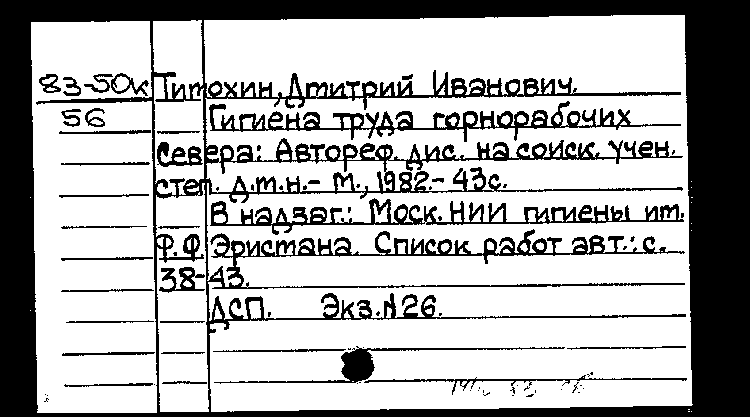 83-50к Тимохин, Дмитрий Иванович.
56 Гигиена труда горнорабочих
Севера: Автореф. дис. на соиск. учен.
степ. д.м.н.- М., 1982.- 43с.
В надзаг.: Моск. НИИ гигиены им.
Ф.Ф. Эрисмана. Список работ авт.: с.
38-43.
ДСП. Экз.N26.